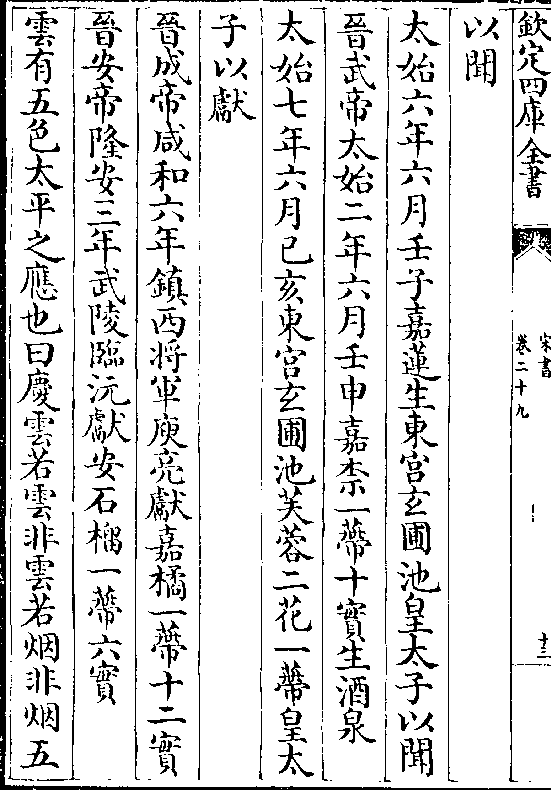 欽定四庫全書
宋書
卷二十九
十三
以聞
太始六年六月壬子嘉蓮生東宮玄圃池皇太子以聞
晉武帝太始二年六月壬申嘉柰一蔕十實生酒泉
太始七年六月己亥東宮玄圃池芙蓉二花一蔕皇太
子以獻
晉成帝咸和六年鎮西將軍庾亮獻嘉橘一蔕十二實
晉安帝隆安三年武陵臨沅獻安石榴一蔕六實
雲有五色太平之應也曰慶雲若雲非雲若烟非烟五